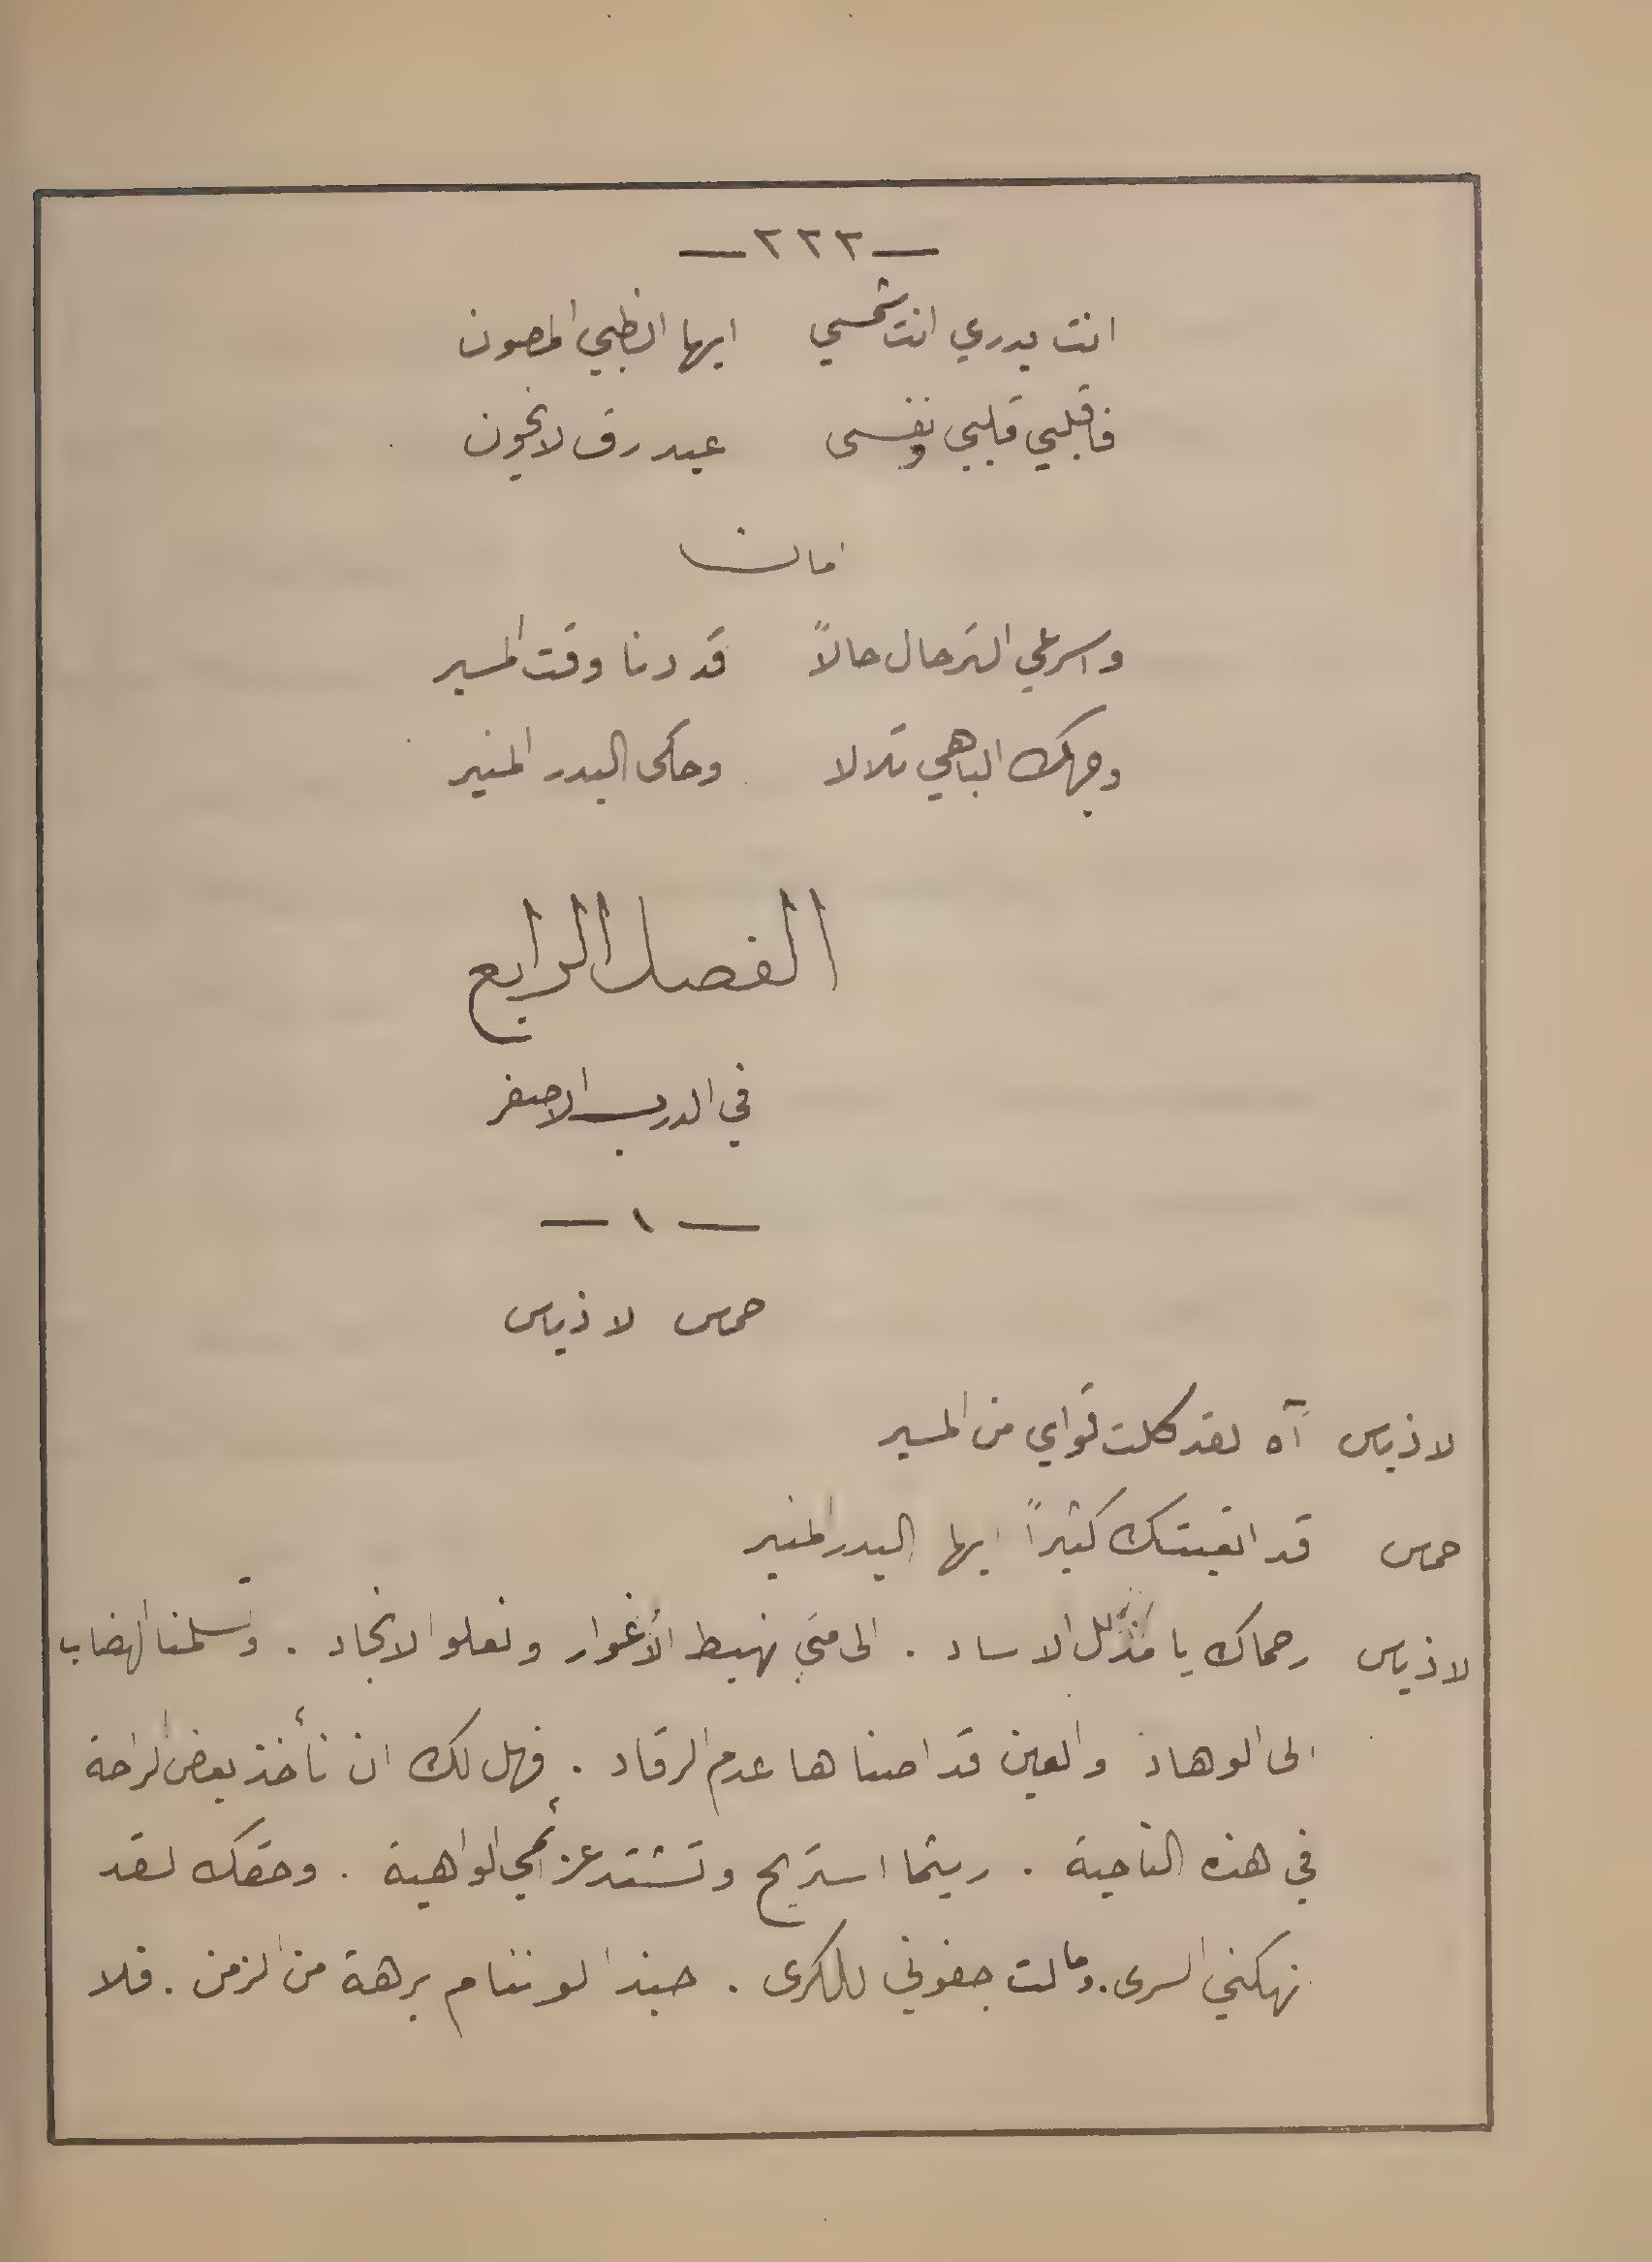 —٢٢٣—
انت بدري انت شمسي ايها الظبي المصون
فاقبلي قلبي ونفسى عبد رق لا نخون
امان
واسرعي الترحال حالاً قد دنا وقت المسير
وجهك الباهي تلالا وحكى البدر المنير
الفصل الرابع
في الدرب الاصفر
— ١ —
حمس لاذياس
لاذياس آه لقد كلت قواي من المسير
حمس قد اتعبتك كثيراً ايها البدر المنير
لاذياس رحماك يا مذلل الاساد . الى متى نهبط الأغوار ونعلو الانجاد . وتسلمنا الهضاب
الى الوهاد والعين قد اضناها عدم الرقاد . فهل لك ان نأخذ بعض الراحة
في هذه الناحية . ريثما استريح وتشتد عزائمي الواهية . وحقك لقد
نهكني السرى . ومالت جفوني للكرى . حبذا لو ننام برهة من الزمن . فلا